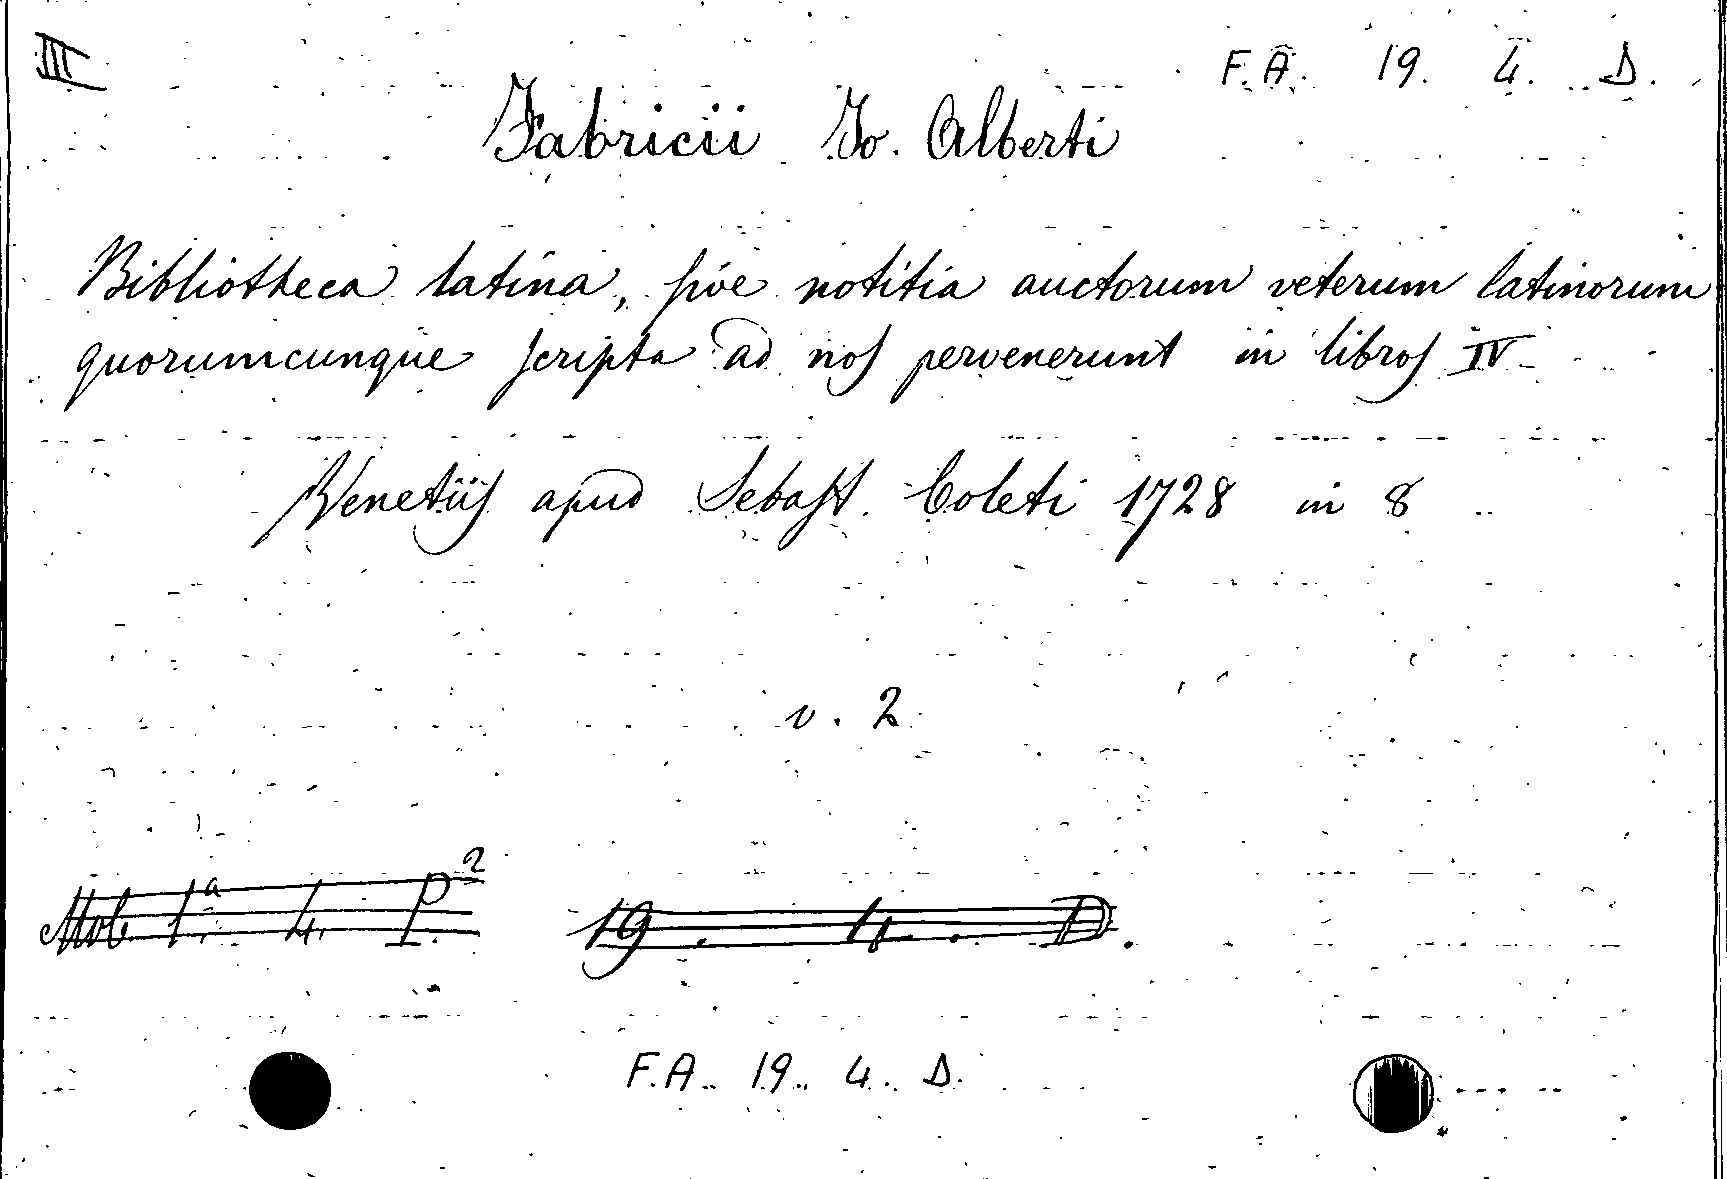 III
F. A. 19. 4. D.
Fabricii Jo. Alberti
Bibliotheca latina, sive notitia auctorum veterum latinorum
quorumcunque scripta ad nos pervenerunt in libros IV
Venetiis apud Sebast. Coleti 1728 in 8
v. 2
Mob. 1.ª 4. P.² 19. 4. D.
F. A. 19. 4. D.